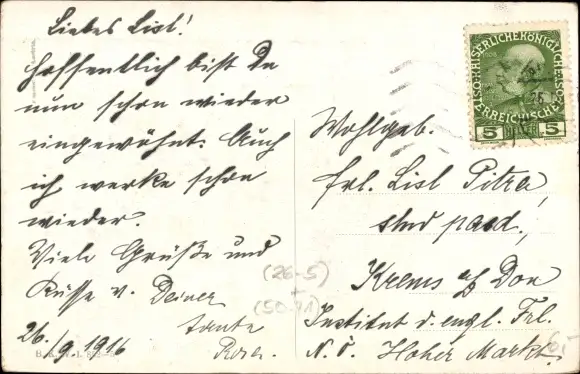 Liebes Lisl!
hoffentlich bist Du
nun schon wieder
eingewöhnt. Auch
ich werke schon
wieder.
Viele Grüße und
Küsse v. Deiner
Tante
Rosa.
26./9 1916
B.K.W.I.
KAISERLICHE KÖNIGLICHE
ÖSTERREICHISCHE
5 5
Wohlgeb.
Frl. Lisl Pitza,
stud paed.,
Krems a/ Don
Institut d. engl. Frl.
N. Ö. Hoher Markt
(26-5)
+
(50-71)